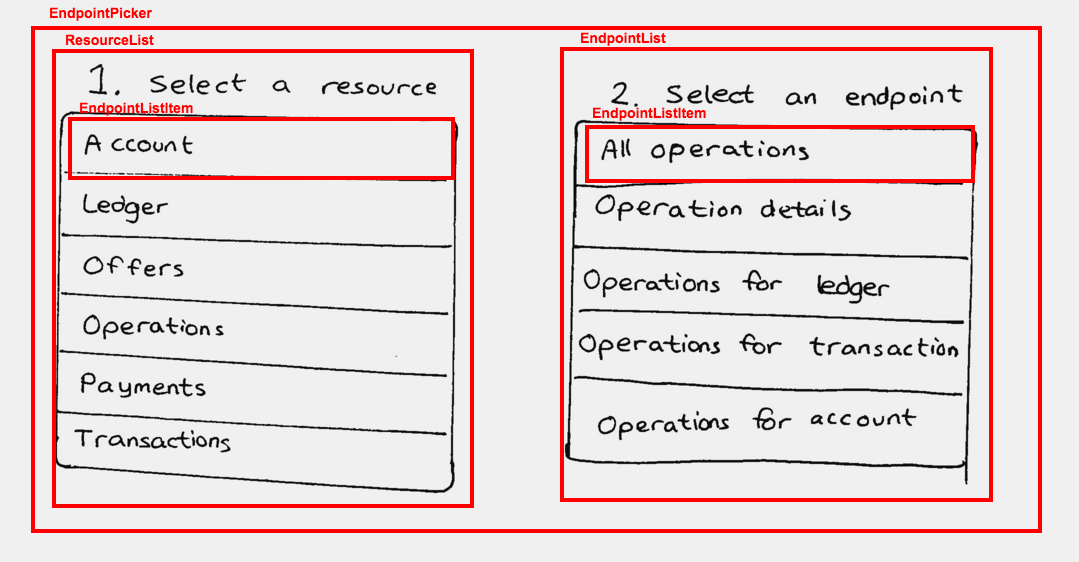 EndpointPicker
ResourceList
1. Select a resource
EndpointListItem
Account
Ledger
Offers
Operations
Payments
Transactions
EndpointList
2. Select an endpoint
EndpointListItem
All operations
Operation details
Operations for ledger
Operations for transaction
Operations for account